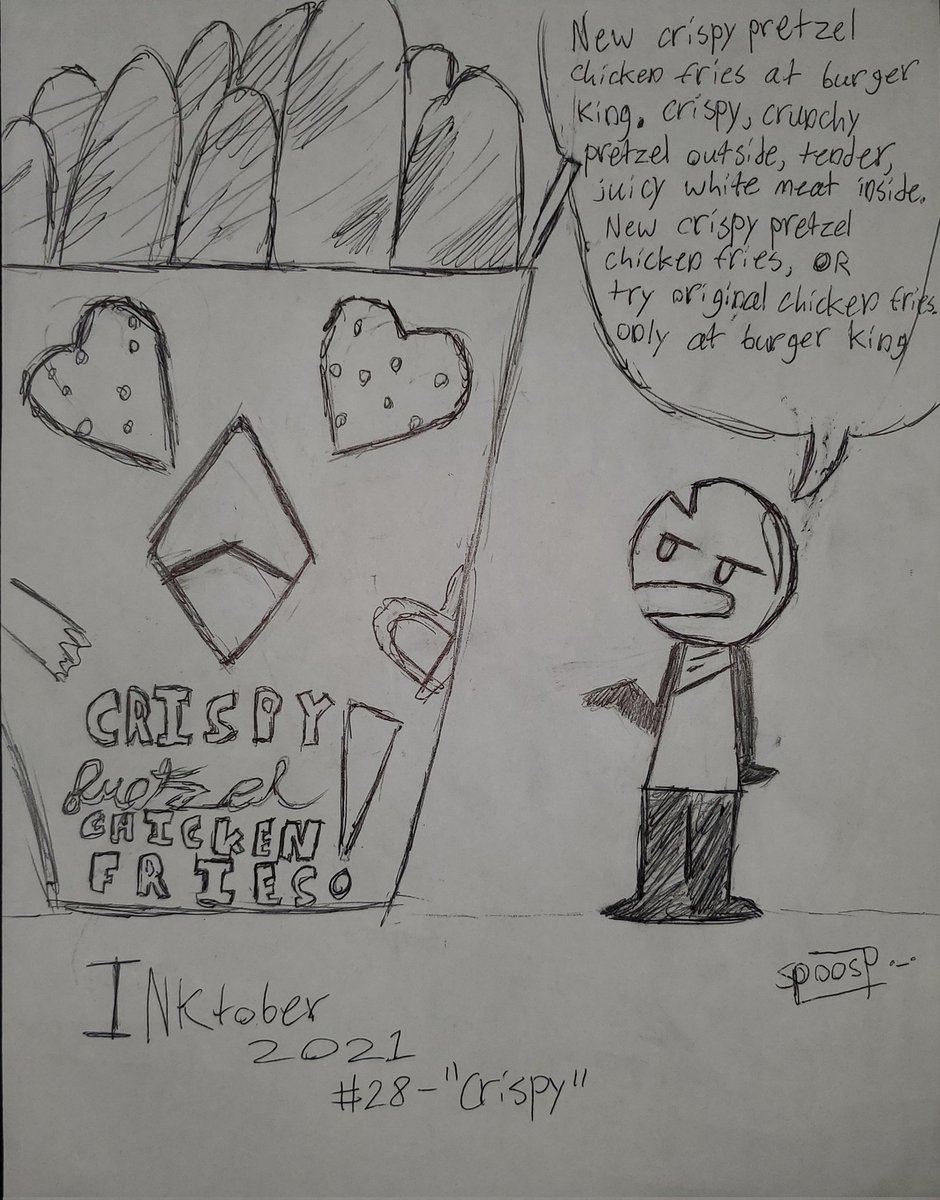 New crispy pretzel
chicken fries at burger
king. crispy, crunchy
pretzel outside, tender,
juicy white meat inside.
New crispy pretzel
chicken fries, OR
try original chicken fries.
only at burger king
CRISPY
pretzel
CHICKEN
FRIES!
spoosp
INKtober
2021
#28-"Crispy"